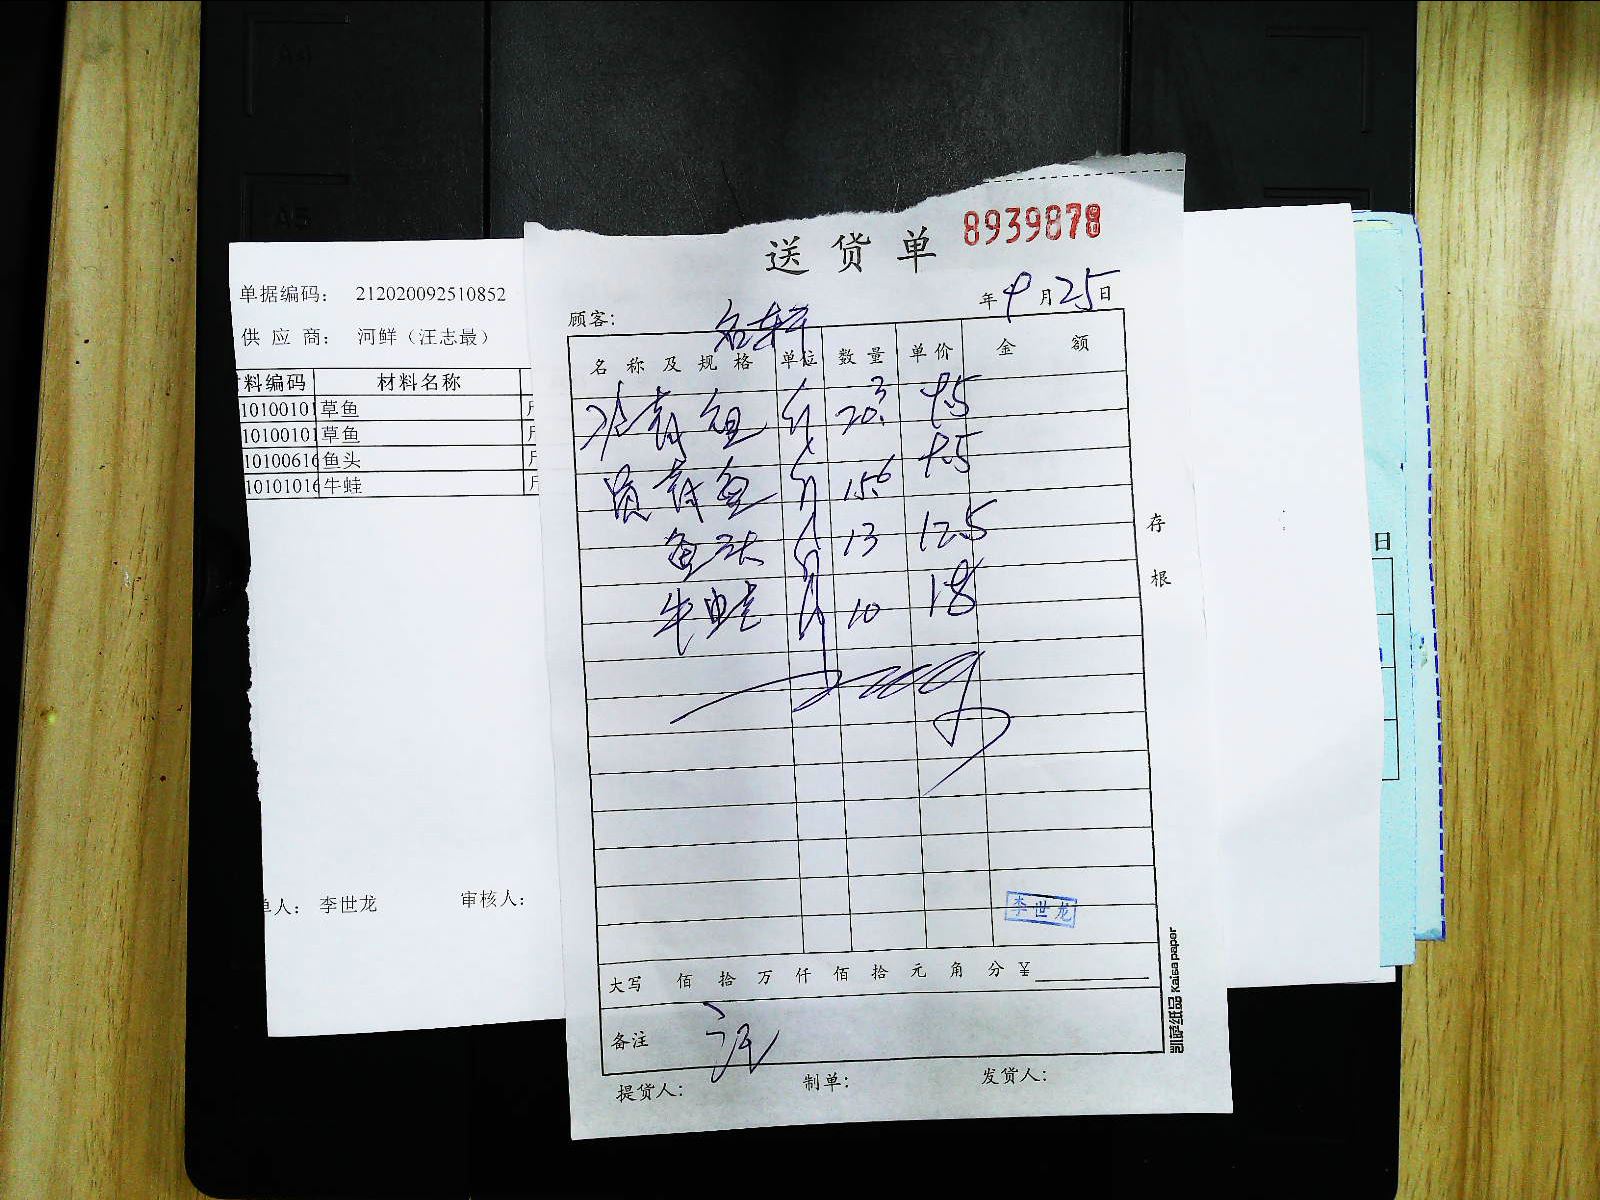 单据编码： 212020092510852
供 应 商： 河鲜（汪志最）
料编码 材料名称
10100101 草鱼
10100101 草鱼
10100616 鱼头
10101016 牛蛙
单人： 李世龙 审核人：
送货单 8939878
年9月25日
顾客：
名称及规格 单位 数量 单价 金额
青鱼 斤 20.3 9.5
青鱼 斤 15.6 9.5
鱼头 斤 13 12.5
牛蛙 斤 10 18
存根
李世龙
大写 佰 拾 万 仟 佰 拾 元 角 分 ¥
备注 汪
提货人： 制单： 发货人：
凯萨纸品 Kaisa paper
日